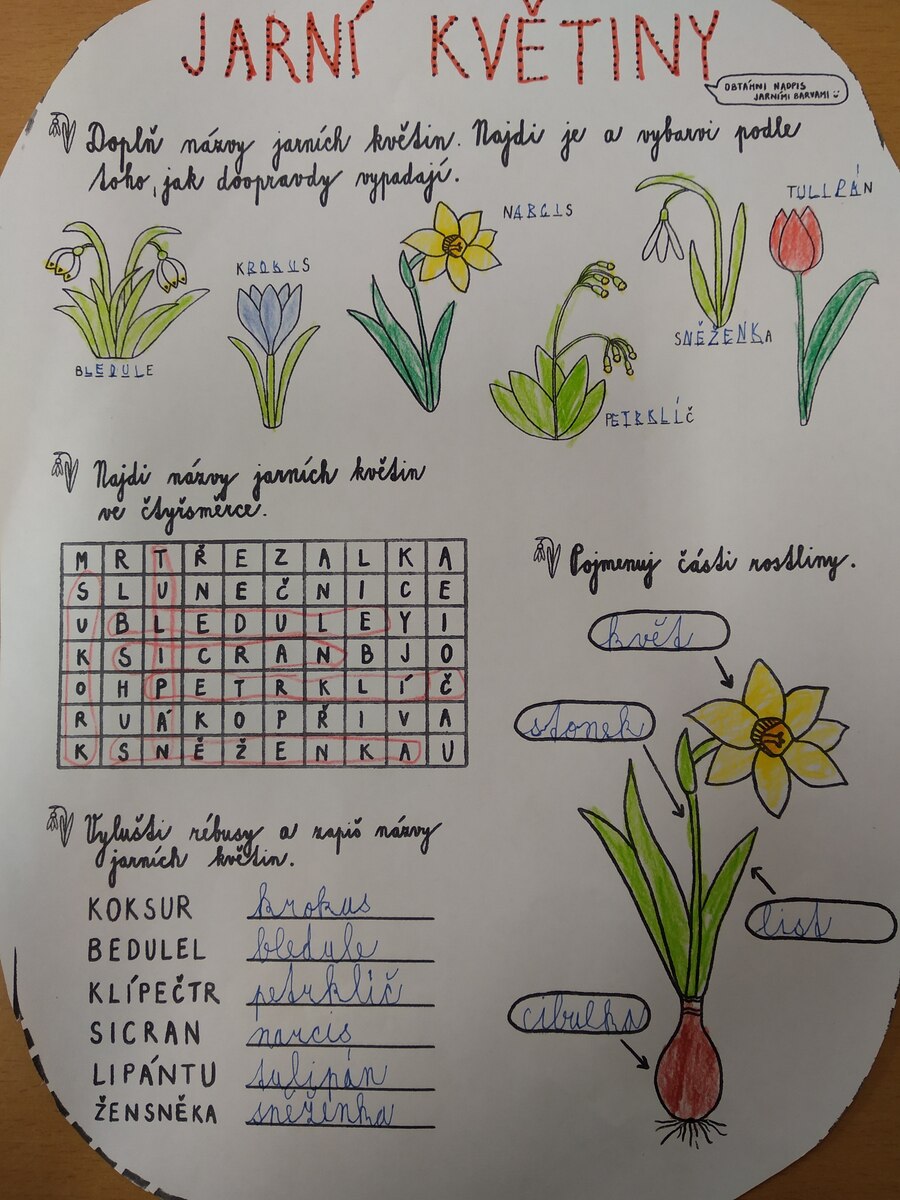 JARNÍ KVĚTINY
OBTÁHNI NADPIS
JARNÍMI BARVAMI
Doplň názvy jarních květin. Najdi je a vybarvi podle
toho, jak doopravdy vypadají.
TULIPÁN
NARCIS
KROKUS
SNĚŽENKA
BLEDULE
PETRKLÍČ
Najdi názvy jarních květin
ve čtyřsměrce.
M R T Ř E Z A L K A
S L U N E Č N I C E
U B L E D U L E Y I
K S I C R A N B J O
O H P E T R K L Í Č
R U Á K O P Ř I V A
K S N Ě Ž E N K A U
Pojmenuj části rostliny.
květ
stonek
list
cibulka
Vylušti rébusy a zapiš názvy
jarních květin.
KOKSUR krokus
BEDULEL bledule
KLÍPEČTR petrklíč
SICRAN narcis
LIPÁNTU tulipán
ŽENSNĚKA sněženka